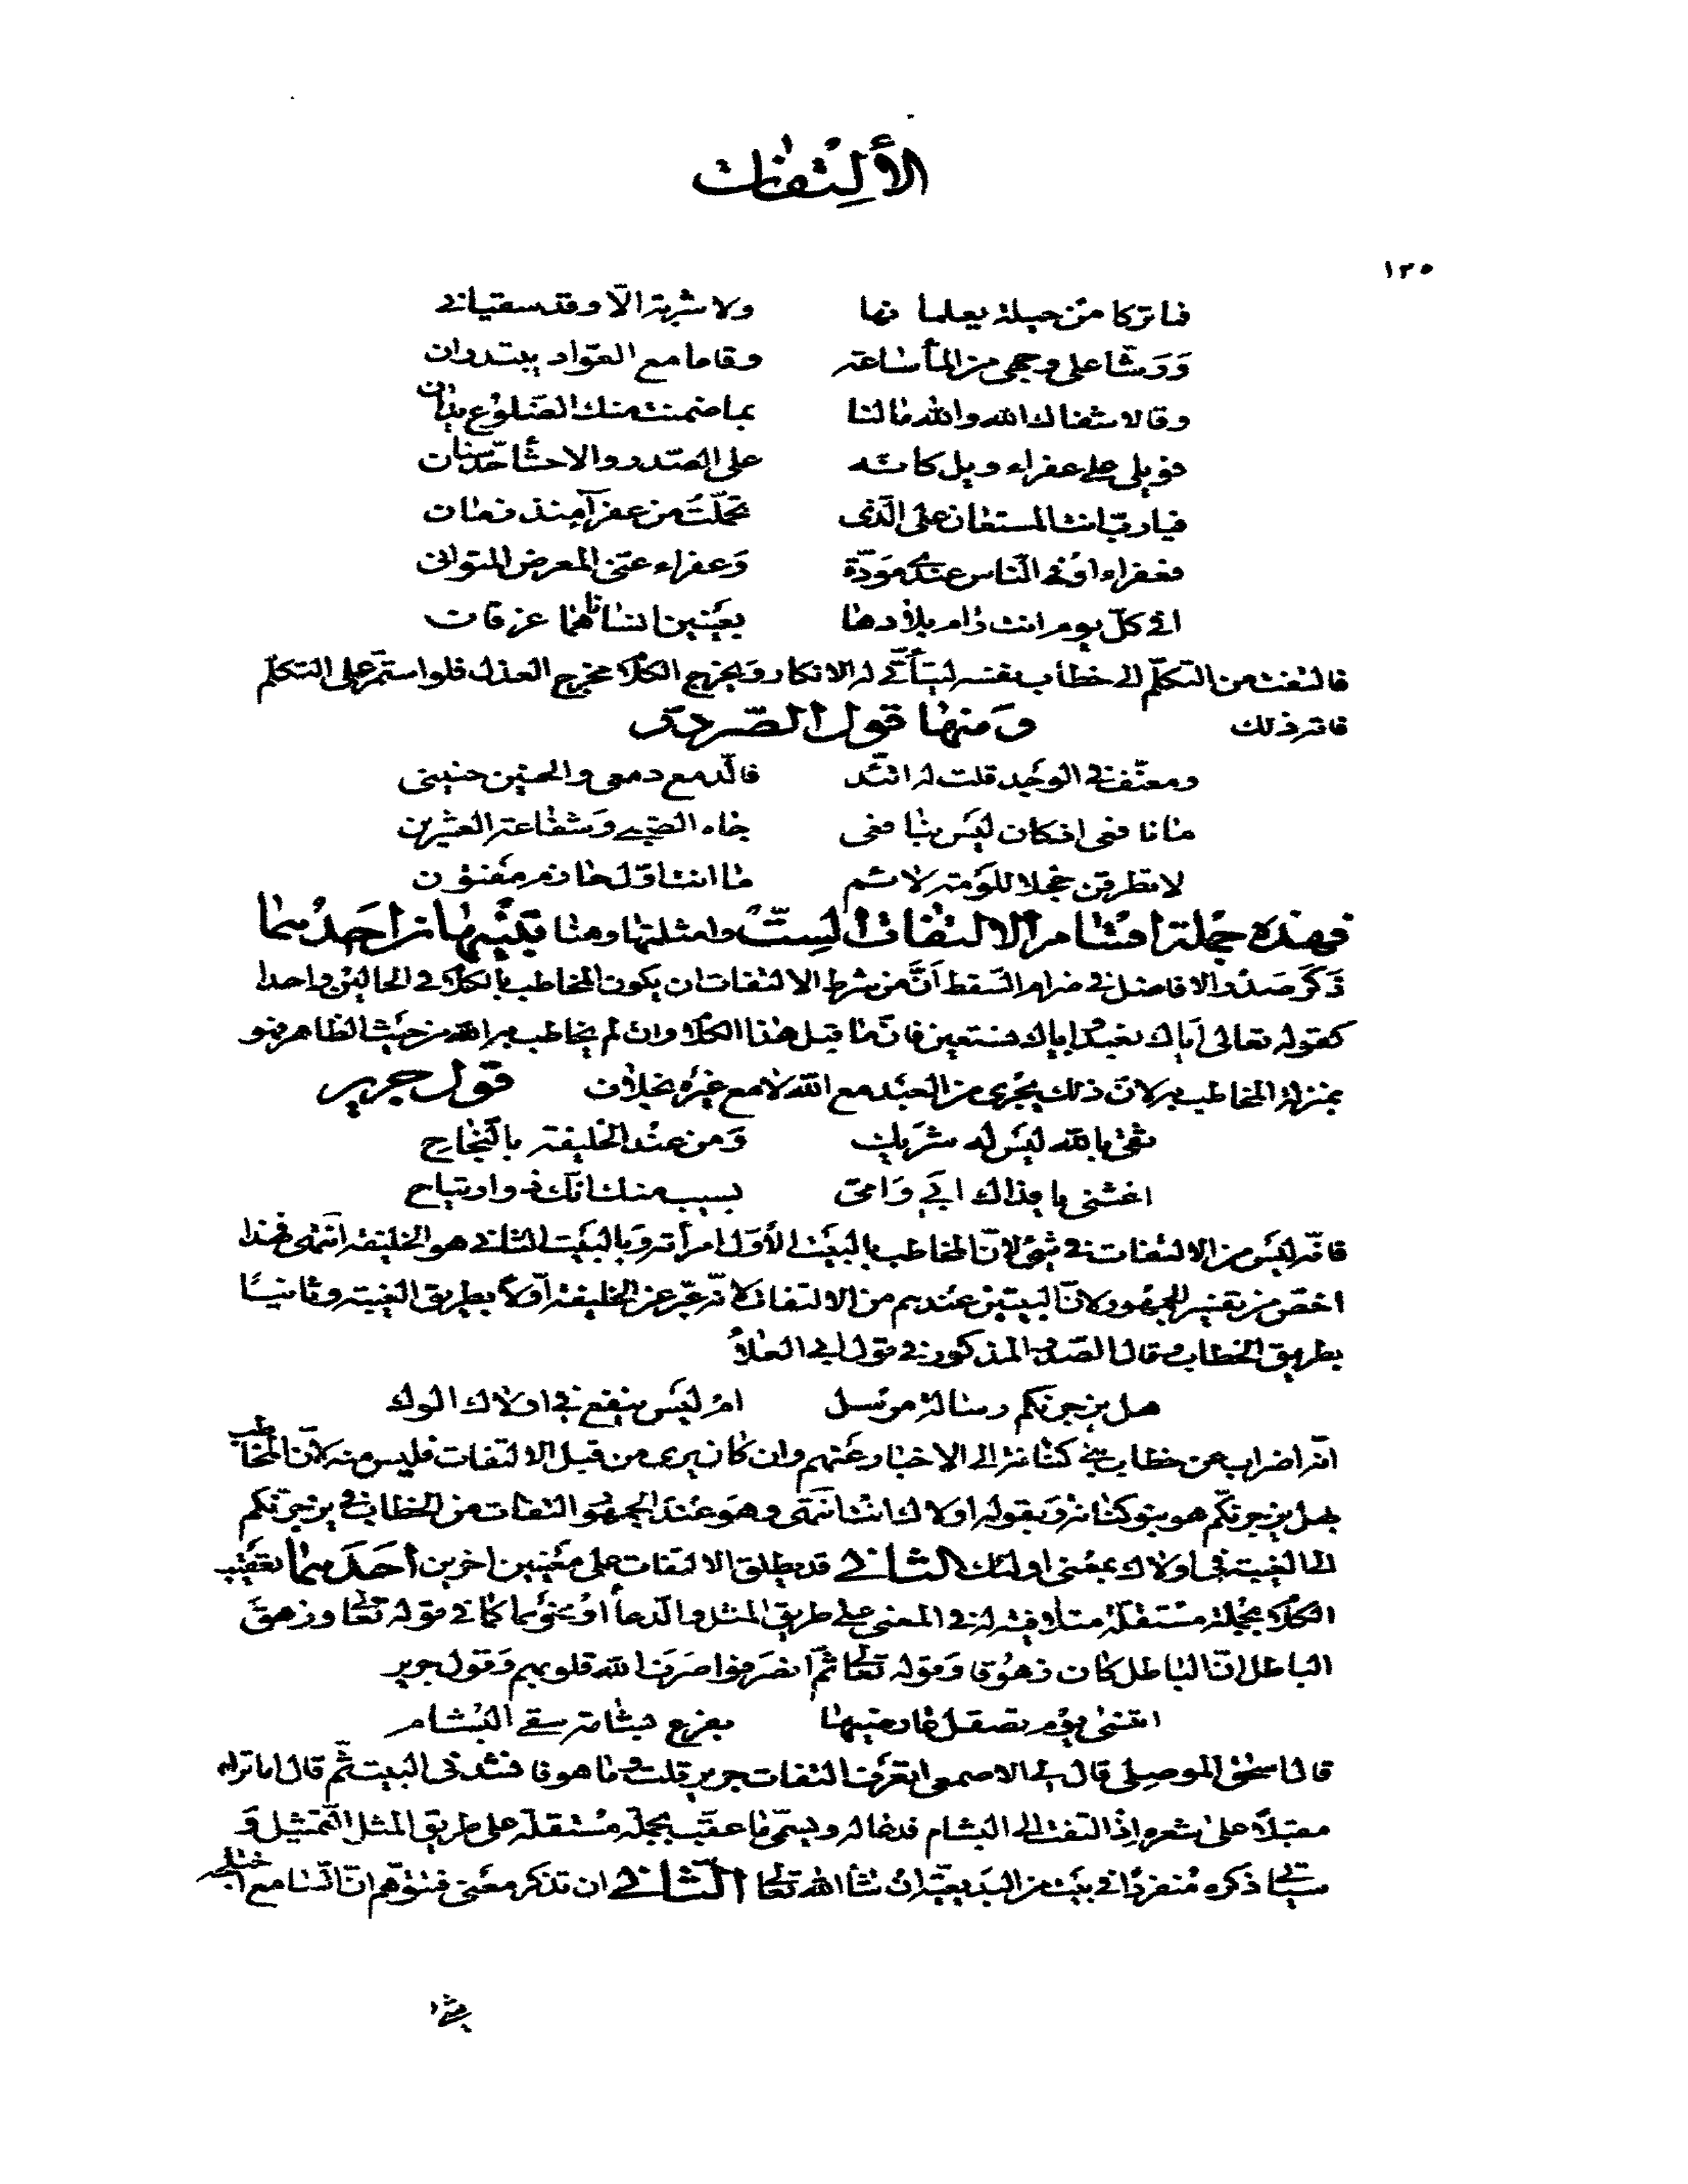 الألتفات
١٢٥
فما تركا من حيلة يعلمانها ولا شربة الّا وقد سقياني
وَرَشّا على وجهى من المأ ساعة وقاما مع العوّاد يبتدران
وقالا شفاك الله والله مالنا بما ضمنت منك الضّلوع يدان
فويلى على عفراء ويل كانّه على الصّدر والاحشأ حدّ سنان
فيا ربّ انت المستعان على الّذى تحمّلت من عفرآ منذ زمان
فعفراء اوفى النّاس عندى مودّة وَعفراء عنّى المعرض المتوانى
افى كلّ يوم انت رام بلادها بعَينين انساناهما غرقان
فالتفت من التكلّم الى خطاب نفسه ليتأتّى له الانكار وَيخرج الكلام مخرج العذل فلو استمرّ على التكلّم
فاته ذلك وَمنها قول الصّردرّ
ومعنّف فى الوَجد قلت له اتّئد فالدمع دمعى والحنين حنينى
ما نافعى اذ كان ليَس بنافعى جاه الصّبى وَشفاعة العشرين
لا تطرقن خجلا للَومة لائم ما انت اوّل حازم مفتون
فهذه جملة اقسام الالتفات السِتّ وامثلتها وهنا تنبيهان احَدُهما
ذكَرَ صَدر الافاضل فى ضرام السّقط أنّ من شرط الالتفات ان يكون المخاطب بالكلام فى الحالين واحدا
كقوله تعالى اياك نعبد واياك نستعين فانّ ما قبل هذا الكلام وان لم يخاطب به الله من حيث الظاهر فهو
بمنزلة المخاطب به لانّ ذلك يجرى من العبد مع الله لا مع غيره بخلاف قول جرير
ثقى بالله ليَس له شريك وَمن عند الخليفة بالنّجاح
اغثنى يا فداك ابى وَامىّ بسيب منك انّك ذو ارتياح
فانّه ليَس من الالتفات فى شئ لانّ المخاطب بالبيَت الأوّل امرأته وَبالبيَت الثانى هو الخليفة انتهى فهذا
اخصّ من تفسير الجمهور لانّ البيتين عندهم من الالتفات لانّه عبّر عن الخليفة اوّلاً بطريق الغيبة وثانيًا
بطريق الخطاب وقال الصّدر المذكور فى قول ابى العلاء
هل يزجرنّكم رسالة مرسل ام ليَس ينفع فى اولاك الوك
انّه اضراب عن خطاب بنى كنانة الى الاخبار عَنهم وان كان يرى من قبيل الالتفات فليس منه لانّ المخاطب
بهل يزجرنّكم هو بنو كنانة وَبقوله اولاك انت انتهى وهوَ عند الجمهور التفات من الخطاب فى يزجرنّكم
الى الغيبة فى اولاك بمعنى اولئك الثانى قد يطلق الالتفات على معنيين اخرين أحَدَهما تعقيب
الكلام بجملة مستقلّة متلاقية له فى المعنى على طريق المثل والدّعأ او نحوهما كما فى قوله تعالى وزهقَ
الباطل انّ الباطل كان زهوقا وَقوله تعالى ثمّ انصرفوا صرَف الله قلوبهم وَقول جرير
اتنسى يوم تصقل عارضيها بفرع بشامة سقى البشام
قال اسحق الموصلى قال لى الاصمعى اتعرف التفات جرير قلت وما هو فانشدنى البيت ثمّ قال اما تراه
مقبلاً على شعره اذ التفت الى البشام فدعا له ويسمّى ما عقّب بجملة مستقلّة على طريق المثل التّمثيل وَ
سيأتى ذكره مُنفردًا فى بيَت من البَديعيّة انْ شأ الله تعالى الثّانى ان تذكر معنى فتتوهّم انّ السّامع اختلجه
شئ